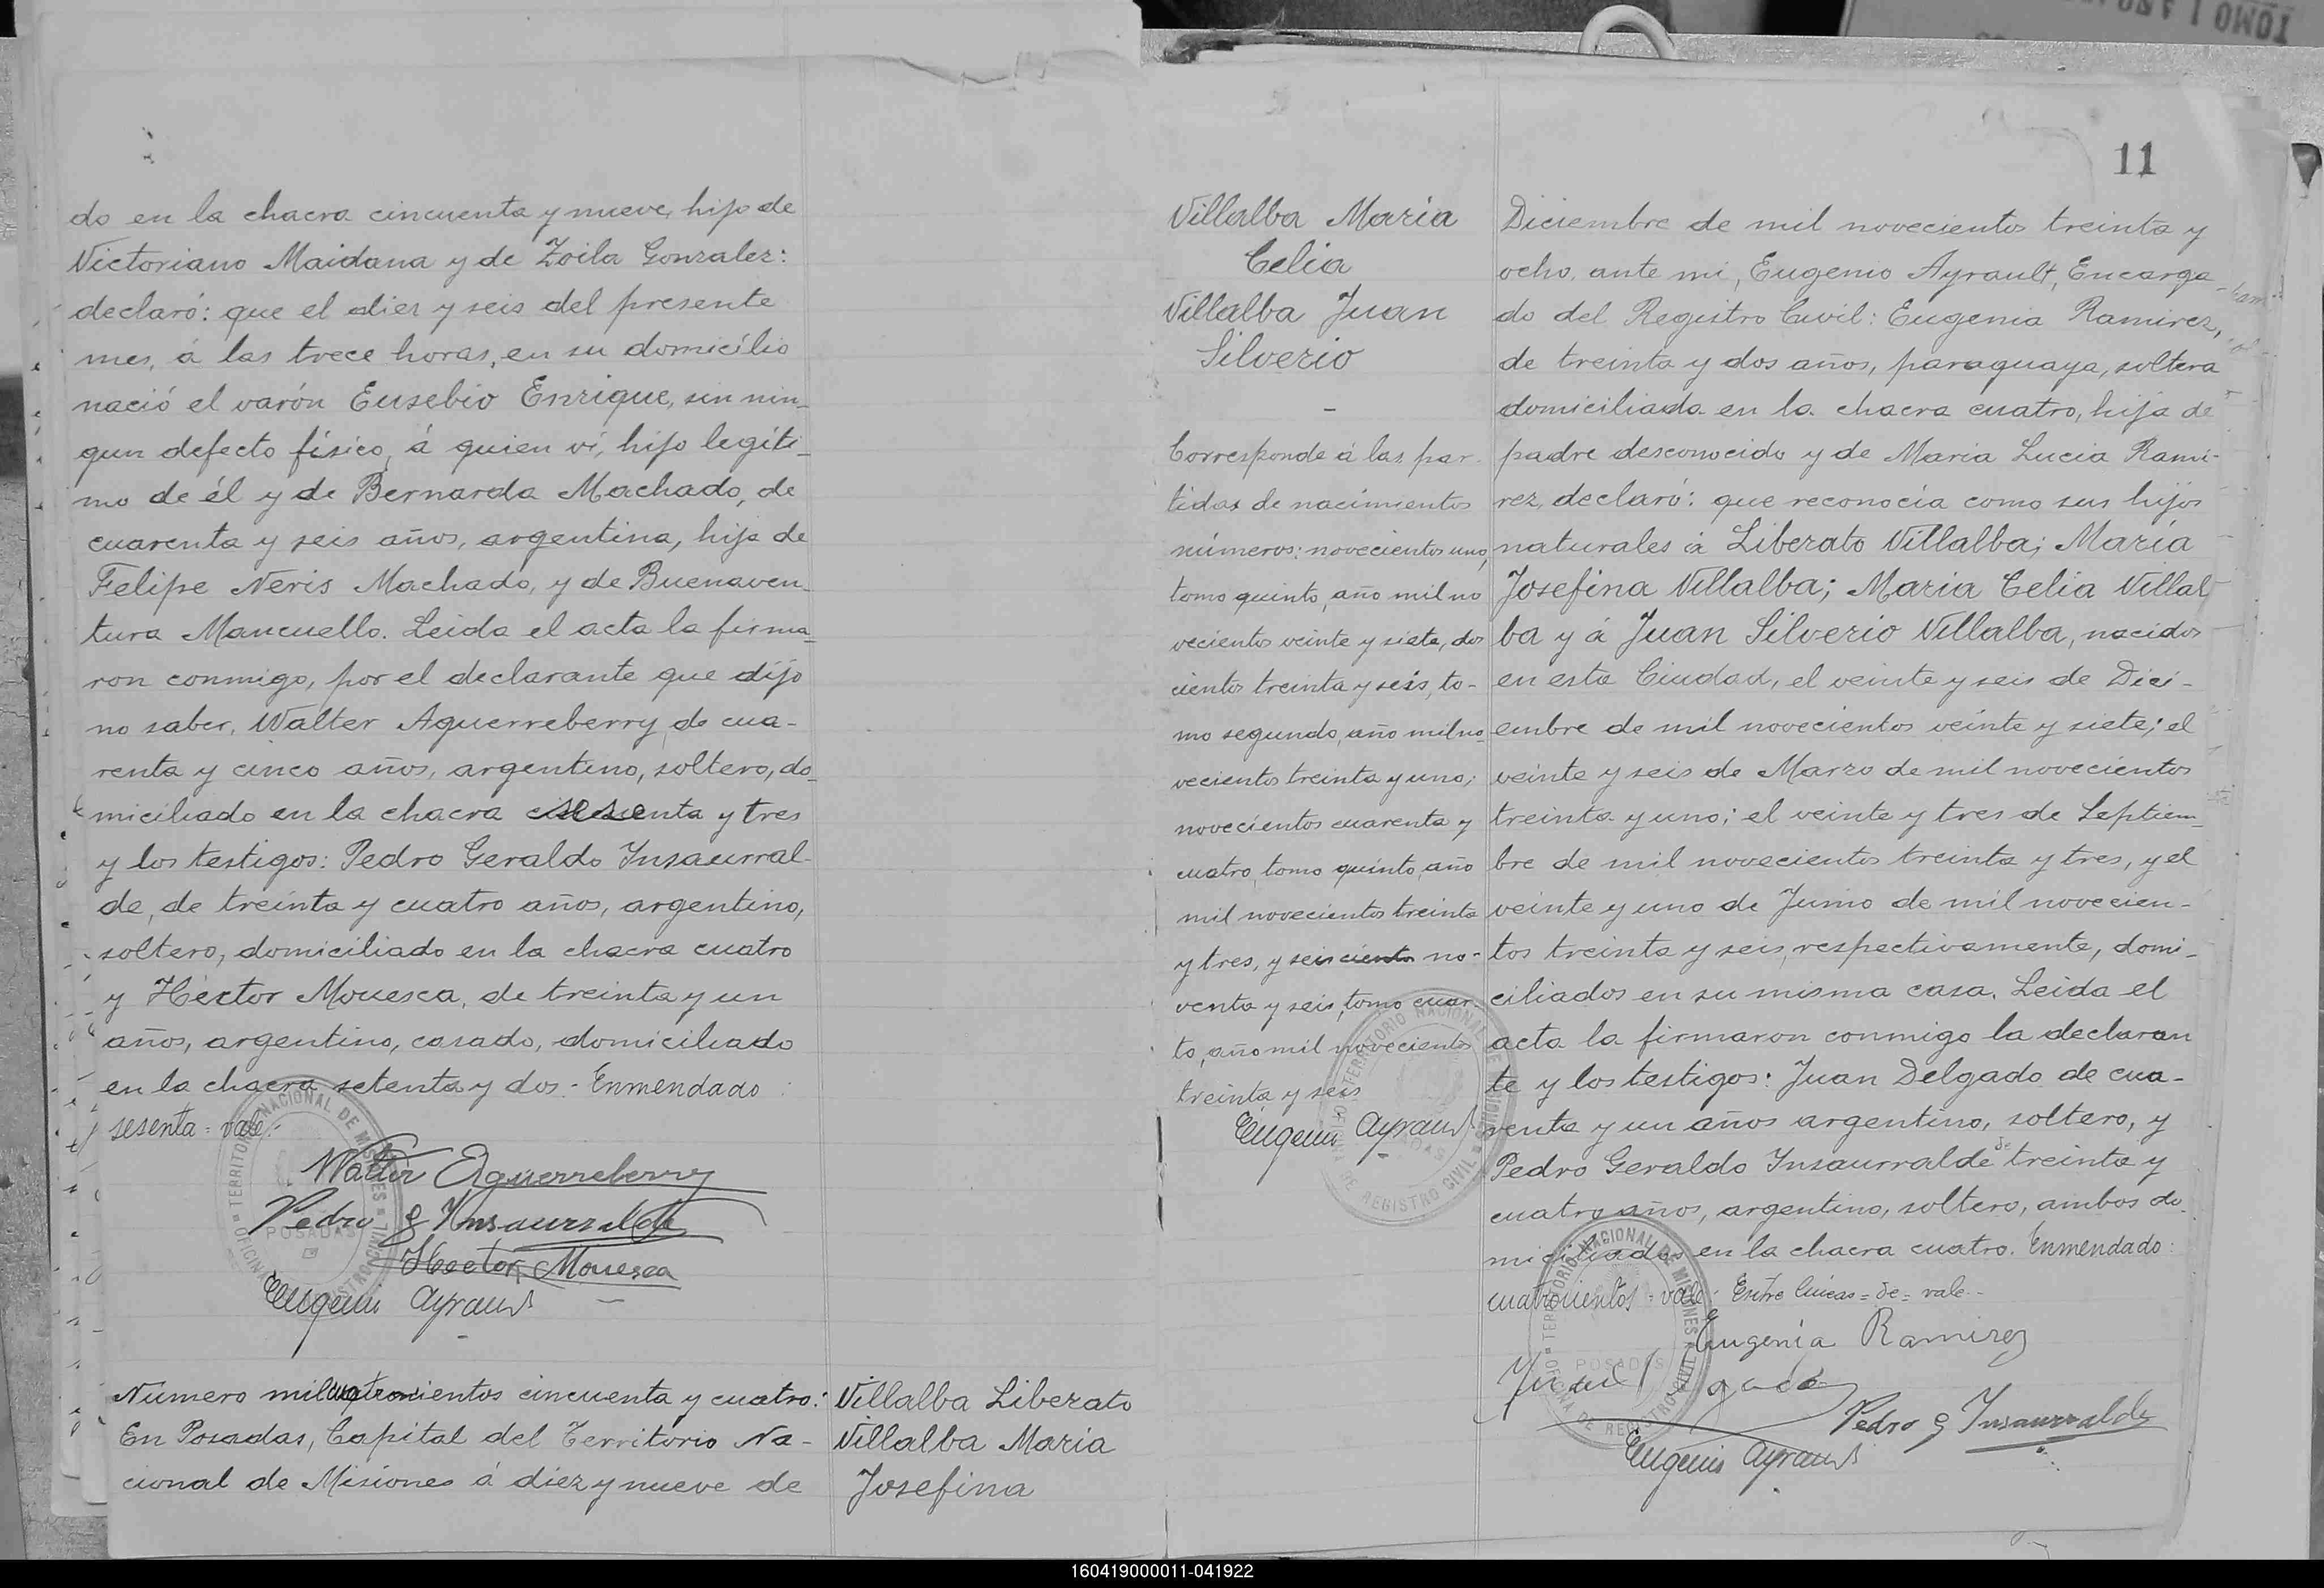 do en la chacra cincuenta y nueve, hijo de
Victoriano Maidana y de Zoila Gonzalez:
declaró: que el diez y seis del presente
mes, á las trece horas, en su domicilio
nació el varón Eusebio Enrique, sin nin-
gun defecto físico, á quien ví, hijo legíti-
mo de él y de Bernarda Machado, de
cuarenta y seis años, argentina, hija de
Felipe Neris Machado, y de Buenaven-
tura Mancuello. Leida el acta la firma-
ron conmigo, por el declarante que dijo
no saber, Walter Aguerreberry, de cua-
renta y cinco años, argentino, soltero, do-
miciliado en la chacra sesenta y tres
y los testigos: Pedro Geraldo Insaurral-
de, de treinta y cuatro años, argentino,
soltero, domiciliado en la chacra cuatro
y Héctor Mouesca, de treinta y un
años, argentino, casado, domiciliado
en la chacra setenta y dos.- Enmendado:
sesenta = vale.-
Walter Aguerreberry
Pedro G Insaurralde
Hector Mouesca
Eugenio Ayrault
TERRITORIO NACIONAL DE MISIONES
POSADAS
Número mil cuatrocientos cincuenta y cuatro:
En Posadas, Capital del Territorio Na-
cional de Misiones á diez y nueve de
Villalba Liberato
Villalba María
Josefina
TOMO I AÑO
11
Villalba María
Celia
Villalba Juan
Silverio
-
Corresponde á las par-
tidas de nacimientos
números: novecientos uno,
tomo quinto, año mil no
vecientos veinte y siete, dos
cientos treinta y seis, to-
mo segundo, año mil no-
vecientos treinta y uno;
novecientos cuarenta y
cuatro, tomo quinto, año
mil novecientos treinta
y tres, y seiscientos no-
venta y seis, tomo cuar-
to, año mil novecientos
treinta y seis
Eugenio Ayrault
TERRITORIO NACIONAL DE MISIONES
REGISTRO CIVIL
Diciembre de mil novecientos treinta y
ocho, ante mí, Eugenio Ayrault, Encarga-
do del Registro Civil: Eugenia Ramirez,
de treinta y dos años, paraguaya, soltera
domiciliada en la chacra cuatro, hija de
padre desconocido y de Maria Lucia Rami-
rez, declaró: que reconocía como sus hijos
naturales á Liberato Villalba; María
Josefina Villalba; María Celia Villal
ba y á Juan Silverio Villalba, nacidos
en esta Ciudad, el veinte y seis de Dici-
embre de mil novecientos veinte y siete; el
veinte y seis de Marzo de mil novecientos
treinta y uno; el veinte y tres de Septiem-
bre de mil novecientos treinta y tres, y el
veinte y uno de Junio de mil novecien-
tos treinta y seis, respectivamente, domi-
ciliados en su misma casa. Leida el
acta la firmaron conmigo la declaran
te y los testigos: Juan Delgado de cua-
renta y un años argentino, soltero, y
Pedro Geraldo Insaurralde de treinta y
cuatro años, argentino, soltero, ambos do-
miciliados en la chacra cuatro. Enmendado:
cuatrocientos = vale.- Entre líneas = de = vale.-
Eugenia Ramirez
Juan Delgado
Pedro G Insaurralde
Eugenio Ayrault
TERRITORIO NACIONAL DE MISIONES
POSADAS
OFICINA DE REGISTRO CIVIL
160419000011-041922